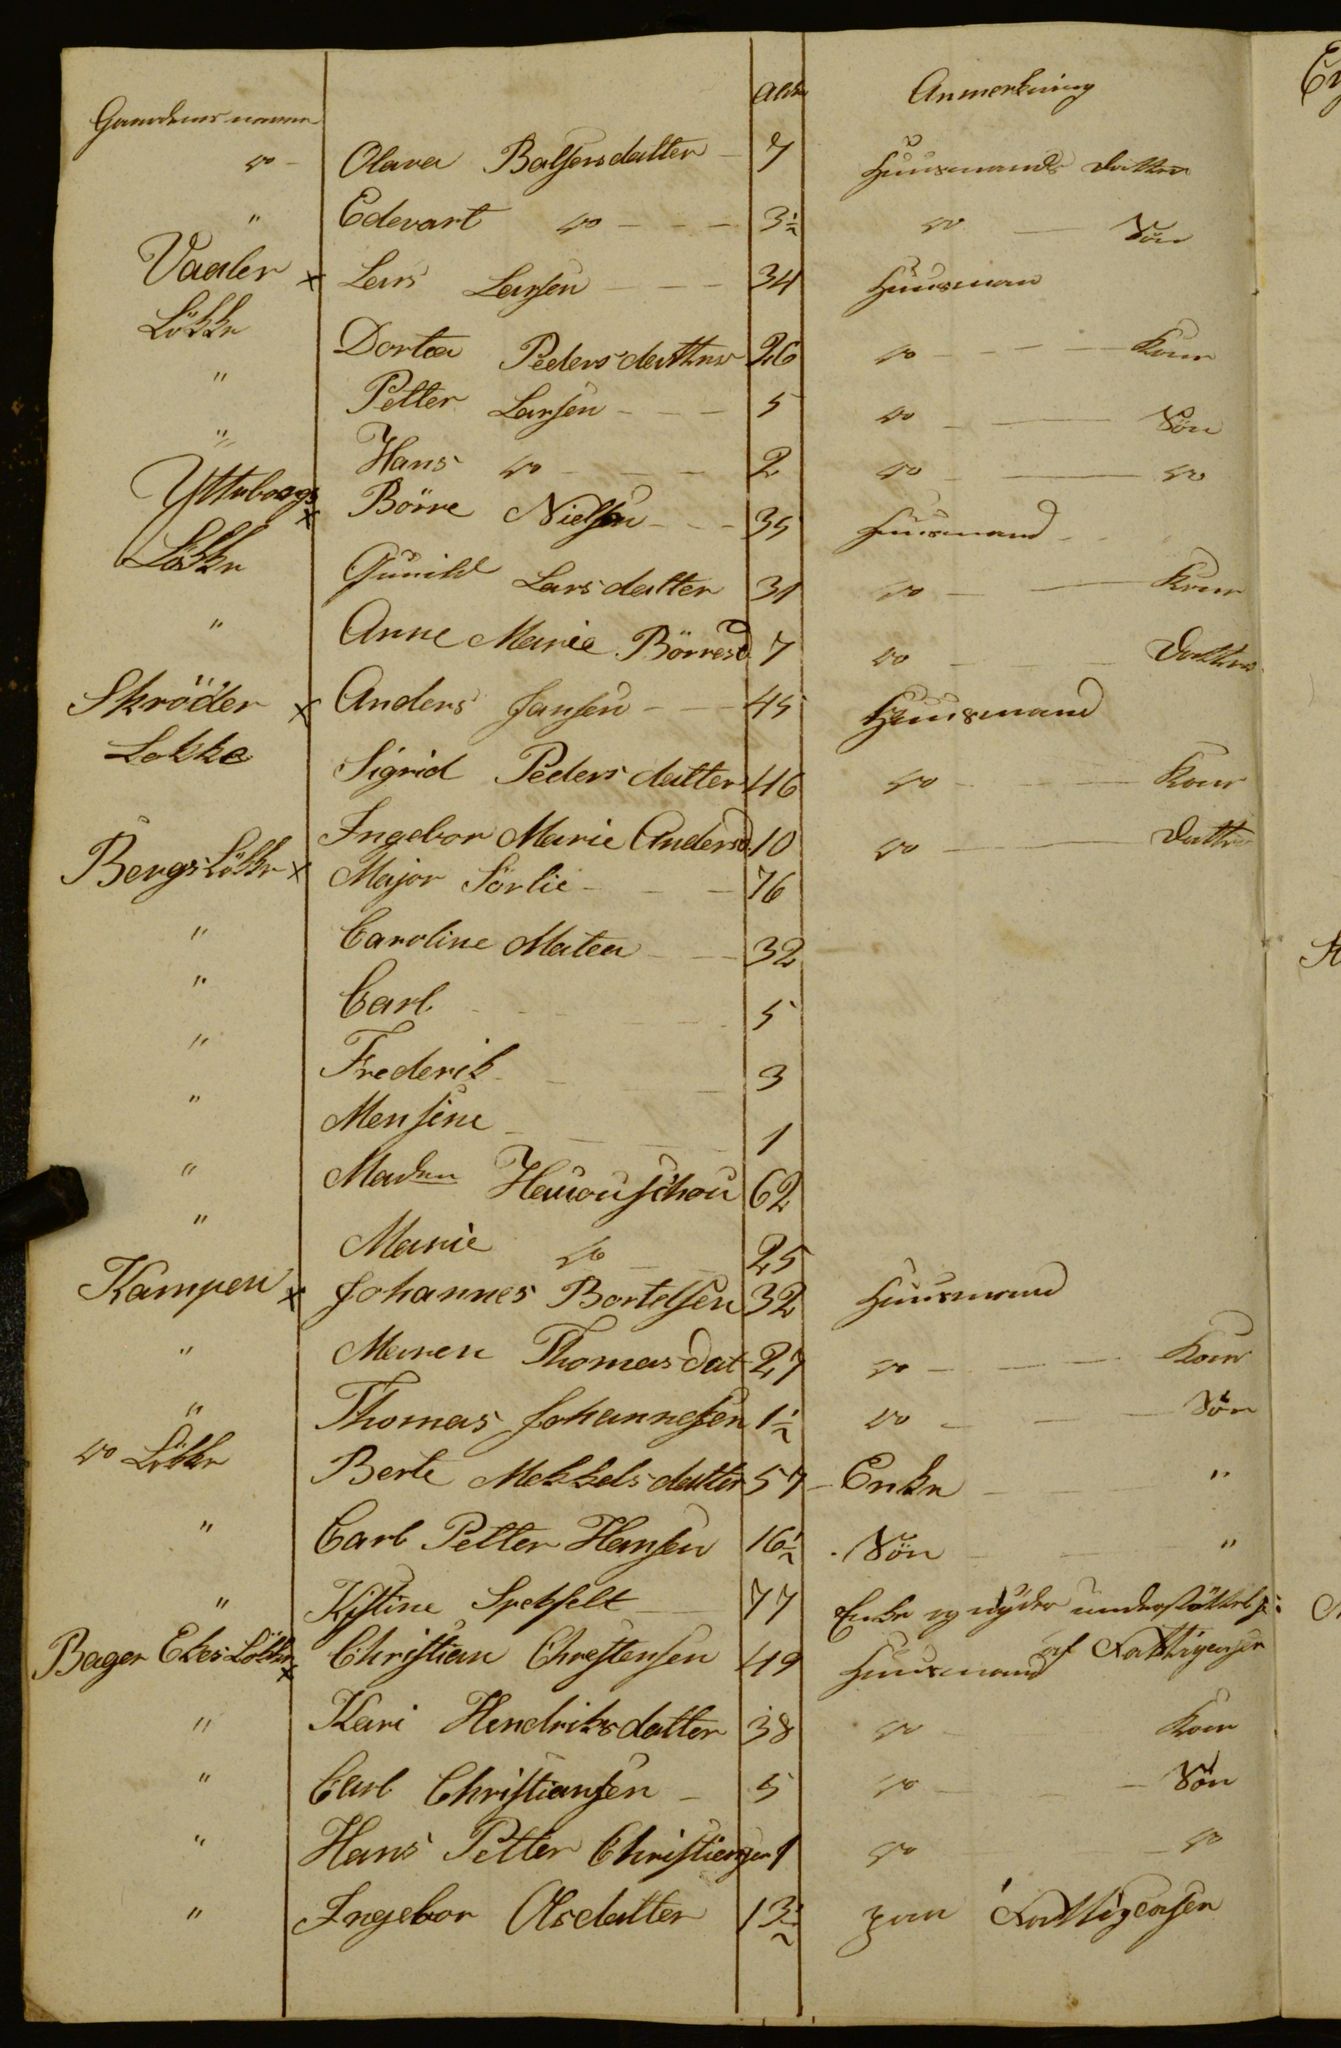 Gaardens navn Alder Anmerkning
do - Olava Balsersdatter - 7 Huusmands Datter
" Edevart do - - - 3½ do - Søn
Vaaler x Lars Larsen - - - 34 Huusman
Løkke Dortea Pedersdatter 26 do - - - Kone
" Petter Larsen - - - 5 do - - Søn
" Hans do - - - 2 do - - do
Ytteborgs x Börre Nielsen - - - 35 Huusmand - -
Løkke Gunild Larsdatter 31 do - - Kone
" Anne Marie Börresd 7 do - - Datter
Skröder x Anders Jansen - - - 45 Huusmand
Løkke Sigrid Pedersdatter 46 do - - - Kone
Ingebor Marie Andersd. 10 do - - Datter
Bergs Løkke x Major Sörlie - - - 76
" Caroline Matea - - - 32
" Carl - - - 5
" Frederik - - - 3
" Mensine - - - 1
" Madm 62
" Marie do - - 25
Kampen x Johannes Bertelsen 32 Huusmand
" Maren Thomasdat 27 do - - - Kone
" Thomas Johannesen 1½ do - - - Søn
do Løkke Berte Mekkelsdatter 57 - Enke - - - "
" Carl Petter Hansen 16½ . Søn - - "
" Kistine 77 Enke og nyder understøttelse
af Fattigcassen
Bager Ekes Løkke x Christian Chrestensen 49 Huusmand
" Kari Hendriksdatter 38 do - Kone
" Carl Christiansen - 5 do - - Søn
" Hans Petter Christiansen 1 do - do
" Ingebor Olsdatter 13½ Fattigcassen